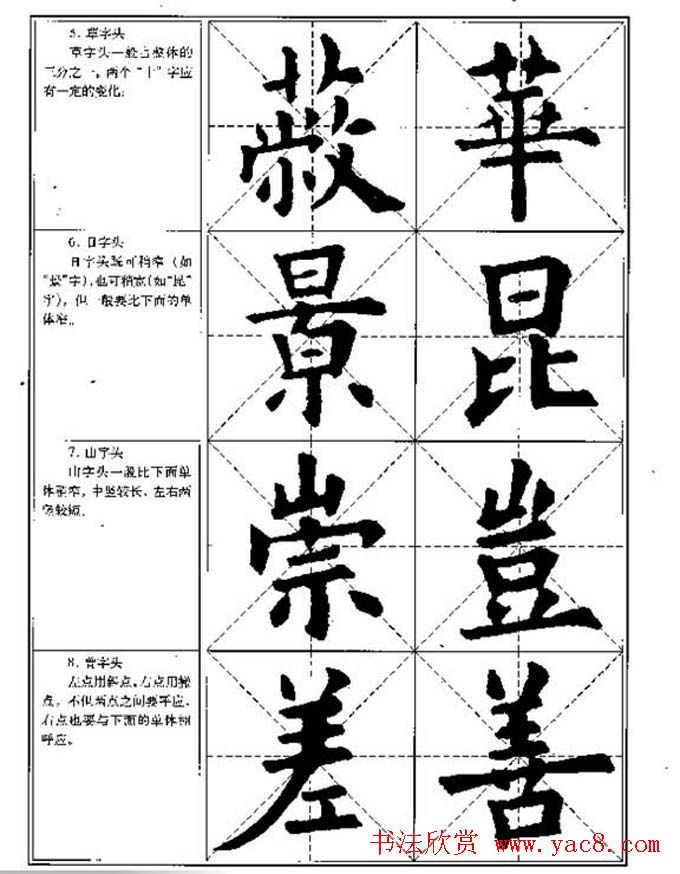 5. 草字头
草字头一般占整体的
三分之一。两个“十”字应
有一定的变化;
蔽 華
6. 日字头
日字头既可稍窄(如
“景”字),也可稍宽(如“昆”
字),但一般要比下面的单
体窄。
景 昆
7. 山字头
山字头一般比下面单
体稍窄,中竖较长、左右两
竖较短。
崇 豈
8. 字头
左点用斜点,右点用撇
点,不但两点之间要呼应,
右点也要与下面的单体相
呼应。
差 善
书法欣赏 www.yac8.com